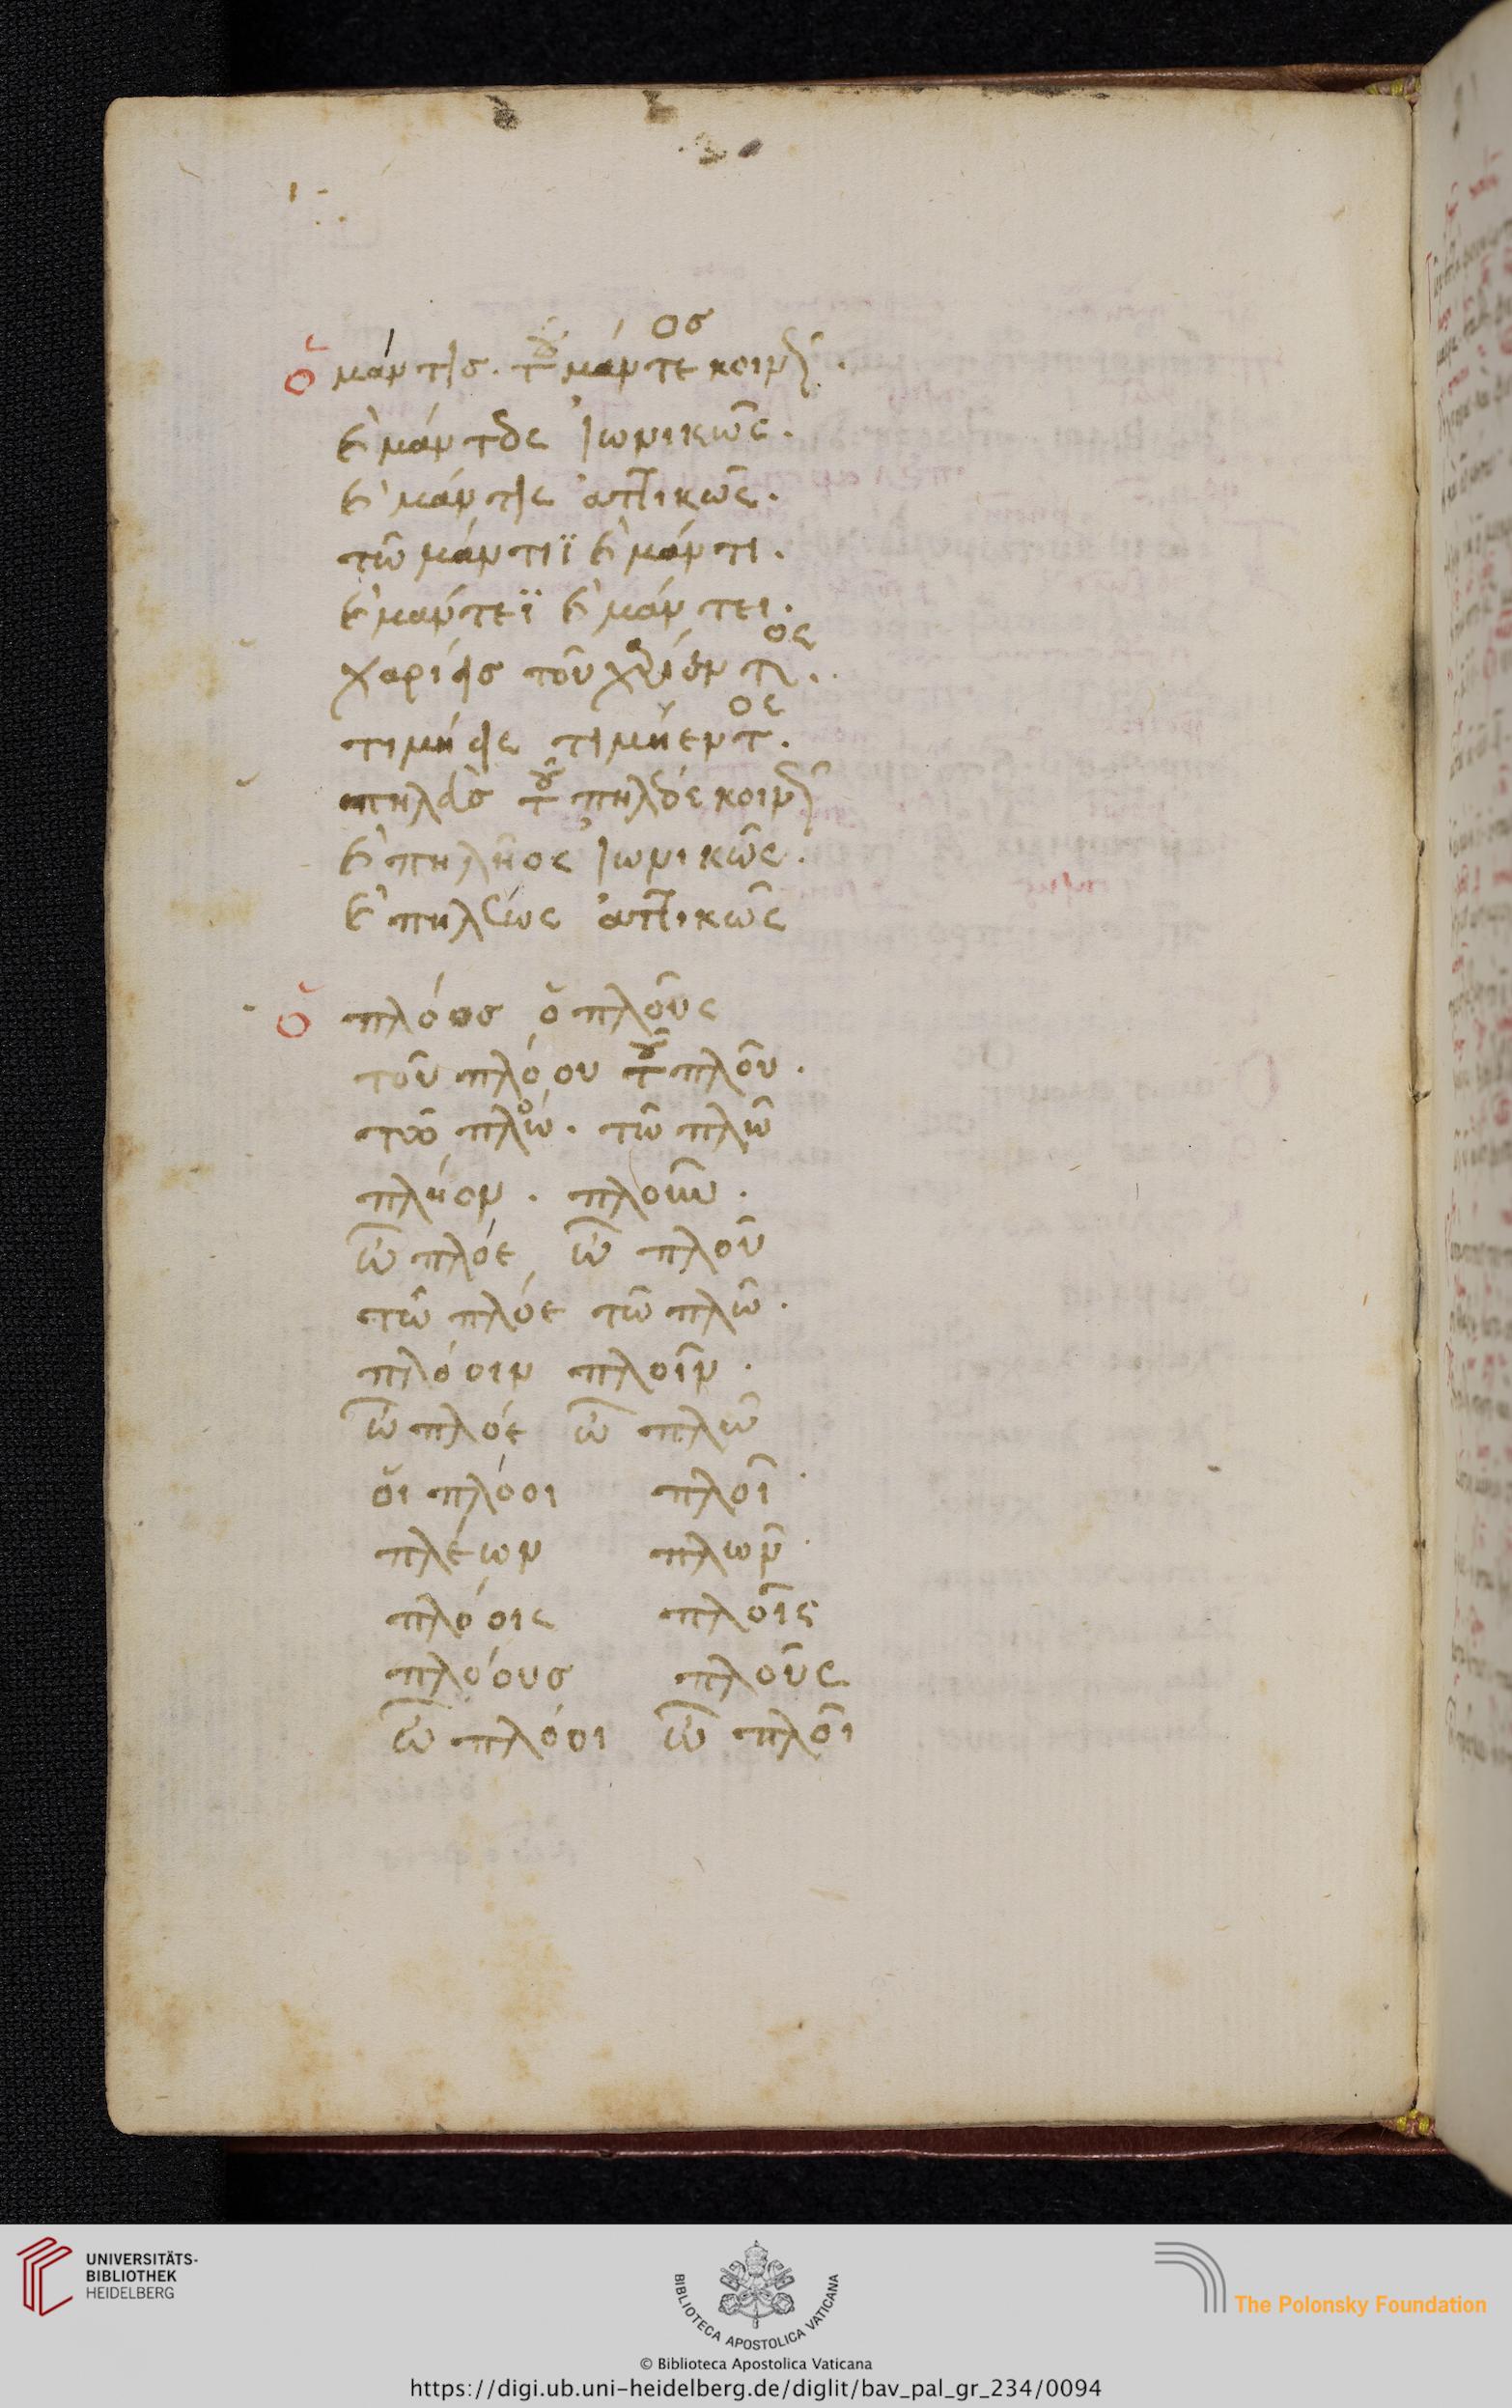 ὁ μάντις. τοῦ μάντεος κοινῶς.
καὶ μάντιος ἰωνικῶς.
καὶ μάντεως ἀττικῶς.
τῶ μάντιϊ καὶ μάντι.
καὶ μάντεϊ καὶ μάντει.
χαρίεις τοῦ χαρίεντος.
τιμήεις τιμήεντος.
πηλεὺς τοῦ πηλέος κοινῶς
καὶ πηλῆος ἰωνικῶς.
καὶ πηλέως ἀττικῶς
ὁ πλόος ὁ πλοῦς
τοῦ πλόου τοῦ πλοῦ.
τῶ πλόω. τῶ πλῶ
πλόον. πλοῦν.
ὦ πλόε ὦ πλοῦ
τῶ πλόε τῶ πλῶ.
πλόοιν πλοῖν.
ὦ πλόε ὦ πλῶ
οἱ πλόοι πλοῖ
πλέων πλῶν
πλόοις πλοῖς
πλόους πλοῦς
ὦ πλόοι ὦ πλοῖ
UNIVERSITÄTS-
BIBLIOTHEK
HEIDELBERG
BIBLIOTECA APOSTOLICA VATICANA
The Polonsky Foundation
© Biblioteca Apostolica Vaticana
https://digi.ub.uni-heidelberg.de/diglit/bav_pal_gr_234/0094